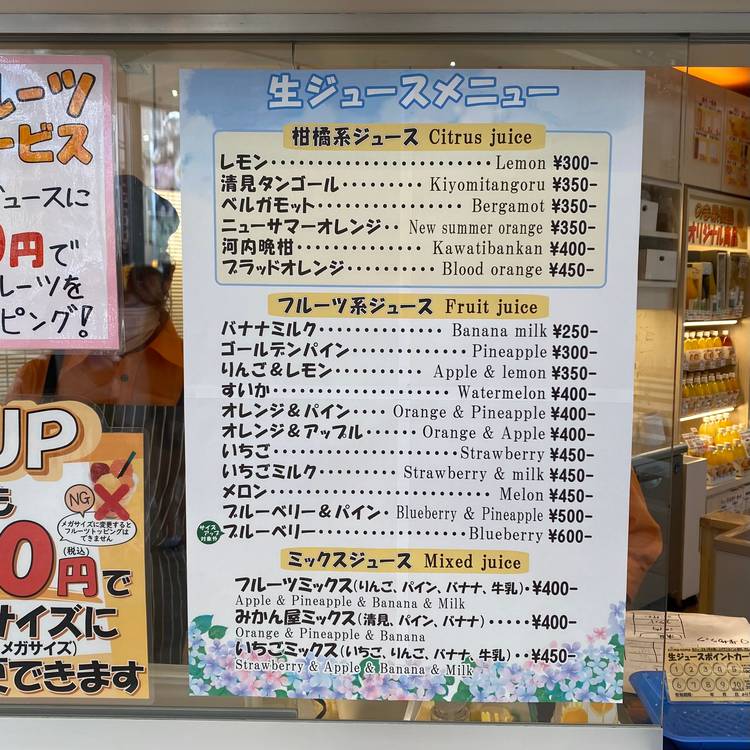 生ジュースメニュー
柑橘系ジュース Citrus juice
レモン Lemon ¥300-
清見タンゴール Kiyomitangoru ¥350-
ベルガモット Bergamot ¥350-
ニューサマーオレンジ New summer orange ¥350-
河内晩柑 Kawatibankan ¥400-
ブラッドオレンジ Blood orange ¥450-
フルーツ系ジュース Fruit juice
バナナミルク Banana milk ¥250-
ゴールデンパイン Pineapple ¥300-
りんご&レモン Apple & lemon ¥350-
すいか Watermelon ¥400-
オレンジ&パイン Orange & Pineapple ¥400-
オレンジ&アップル Orange & Apple ¥400-
いちご Strawberry ¥450-
いちごミルク Strawberry & milk ¥450-
メロン Melon ¥450-
ブルーベリー&パイン Blueberry & Pineapple ¥500-
サイズアップ対象外
ブルーベリー Blueberry ¥600-
ミックスジュース Mixed juice
フルーツミックス(りんご、パイン、バナナ、牛乳) ¥400-
Apple & Pineapple & Banana & Milk
みかん屋ミックス(清見、パイン、バナナ) ¥400-
Orange & Pineapple & Banana
いちごミックス(いちご、りんご、バナナ、牛乳) ¥450-
Strawberry & Apple & Banana & Milk
ルーツ
ービス
ジュースに
0円で
ルーツを
ピング!
UP
NG
メガサイズに変更すると
フルーツトッピングは
できません
(税込)
0円で
サイズに
メガサイズ)
できます
オリジナル商品
生ジュースポイントカー